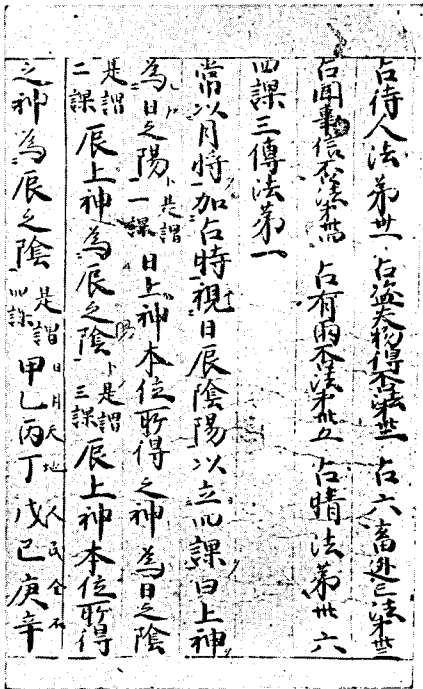 占待人法第卅一 占盗失物得否法第卅二 占六畜逃亡法第卅三
占聞事信否法第卅四 占有雨否法第卅五 占晴法第卅六
四課三傳法第一
常以月将加占時視日辰陰陽以立四課日上神
為日之陽 是謂一課 日上神本位所得之神為日之陰
是謂二課 辰上神為辰之陰 是謂三課 辰上神本位所得
之神為辰之陰 是謂四課 甲乙丙丁戊己庚辛
日月天地人民金石